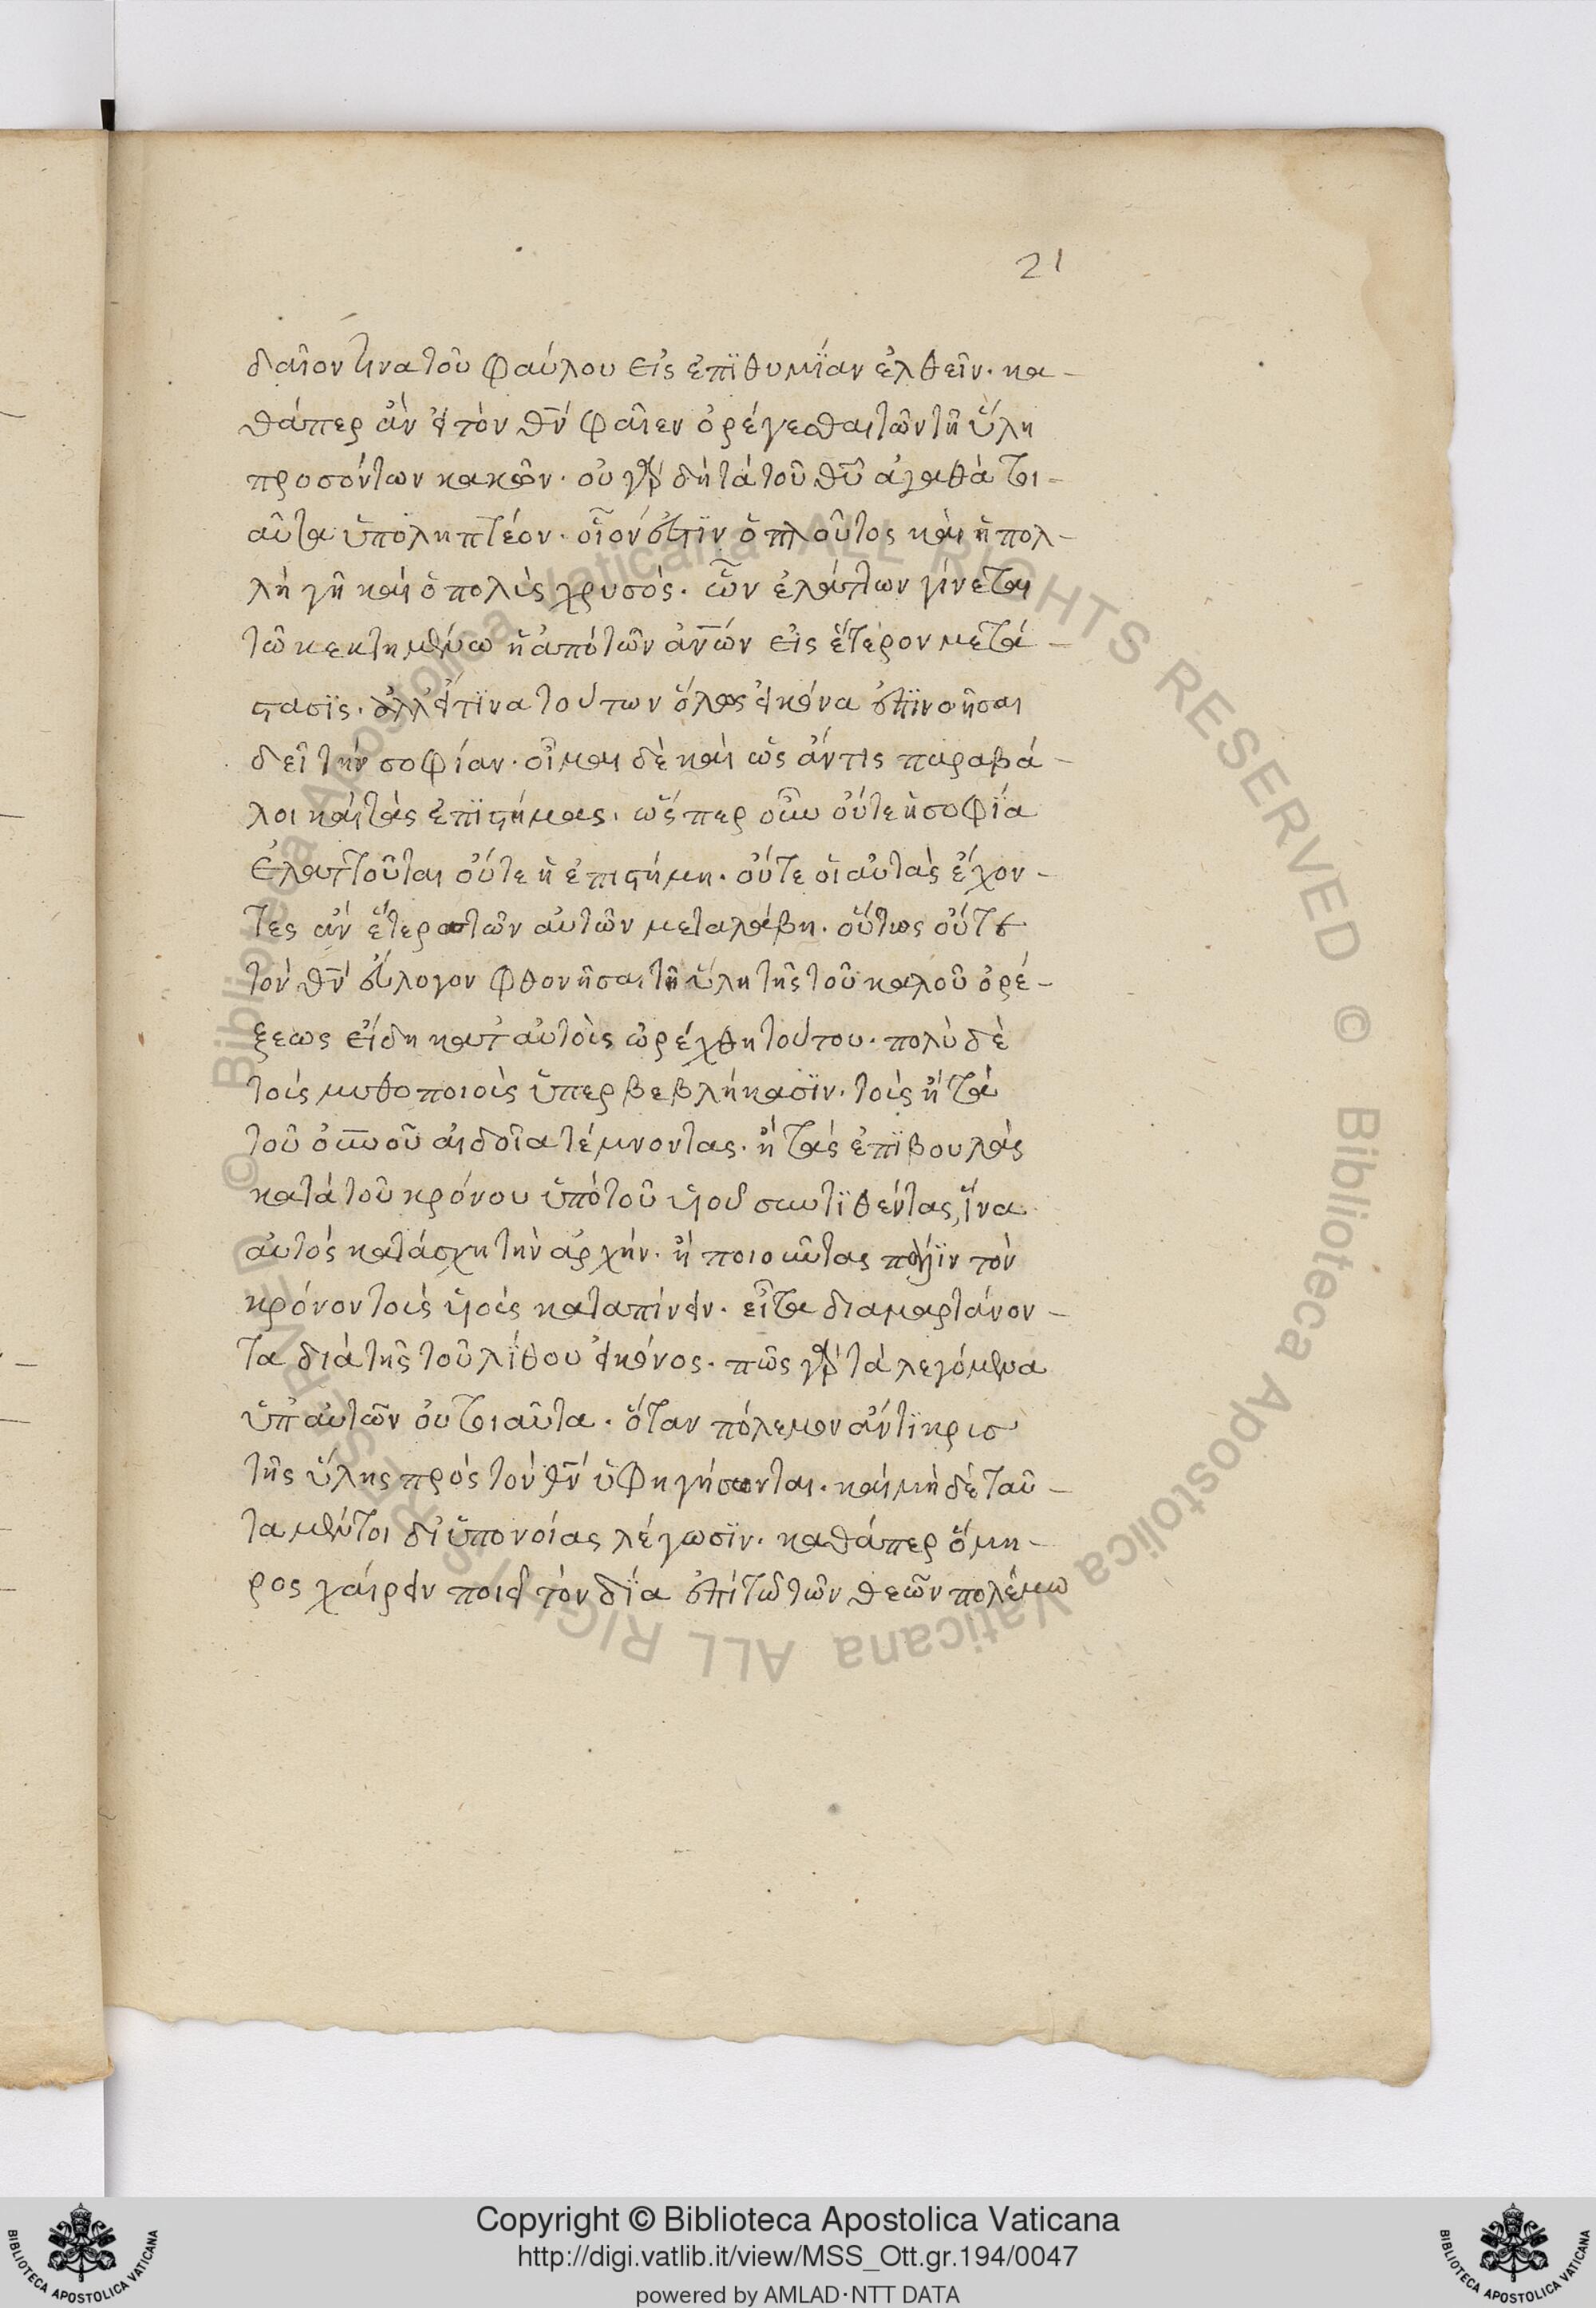 21
δαῖον τινα τοῦ φαύλου εἰς ἐπϊθυμΐαν ἐλθεῖν· κα-
θάπερ ἂν εἰ τὸν θν̅ φαῖεν ὀρέγεσθαι τῶν τῆ ὕλη
προσόντων κακῶν· οὐ γὰρ δὴ τὰ τοῦ θυ̅ ἀγαθὰ τοι-
αῦτα ὑποληπτέον· οἷόν ἐστϊν ὁ πλοῦτος καὶ ἡ πολ-
λὴ γῆ καὶ ὁ πολὺς χρυσός· ὧν ἐλάττων γίνεται
τῶ κεκτημένω ἡ ἀπὸ τῶν ἀν̅ων εἰς ἕτερον μετά-
στασϊς· ἀλλ' εἰ τϊνα τούτων ὅλως εἰκόνα ἐπϊνοῆσαι
δεῖ τὴν σοφίαν· οἶμαι δὲ καὶ ὡς ἄν τις παραβά-
λοι καὶ τὰς ἐπϊστήμας· ὥσπερ οὖν οὔτε ἡ σοφΐα
ἐλαττοῦται οὔτε ἡ ἐπιστήμη· οὔτε οἱ αὐτὰς ἔχον-
τες ἂν ἕτερος τῶν αὐτῶν μεταλάβη· οὕτως οὔτε
τὸν θν̅ εὔλογον φθονῆσαι τῆ ὕλη τῆς τοῦ καλοῦ ὀρέ-
ξεως εἴδη κατ' αὐτοὺς ὠρέχθη τούτου· πολὺ δὲ
τοὺς μυθοποιοὺς ὑπερβεβλήκασϊν· τοὺς ἢ τὰ
τοῦ οὐν̅οῦ αἰδοῖα τέμνοντας· ἢ τὰς ἐπϊβουλὰς
κατὰ τοῦ κρόνου ὑπὸ τοῦ υἱοῦ συντϊθέντας, ἵνα
αὐτὸς κατάσχη τὴν ἀρχήν· ἢ ποιοῦντας πάλϊν τὸν
κρόνον τοὺς υἱοὺς καταπίνειν· εἶτα διαμαρτάνον-
τα διὰ τῆς τοῦ λΐθου εἰκόνος· πῶς γὰρ τὰ λεγόμενα
ὑπ' αὐτῶν οὐ τοιαῦτα· ὅταν πόλεμον ἄντϊκρισ
τῆς ὕλης πρὸς τὸν θν̅ ὑφηγήσωνται· καὶ μὴ δὲ ταῦ-
τα μέντοι δι' ὑπονοίας λέγωσϊν· καθάπερ ὅμη-
ρος χαίρειν ποιεῖ τὸν δΐα ἐπὶ τῶ τῶν θεῶν πολέμω
Copyright © Biblioteca Apostolica Vaticana
http://digi.vatlib.it/view/MSS_Ott.gr.194/0047
powered by AMLAD·NTT DATA